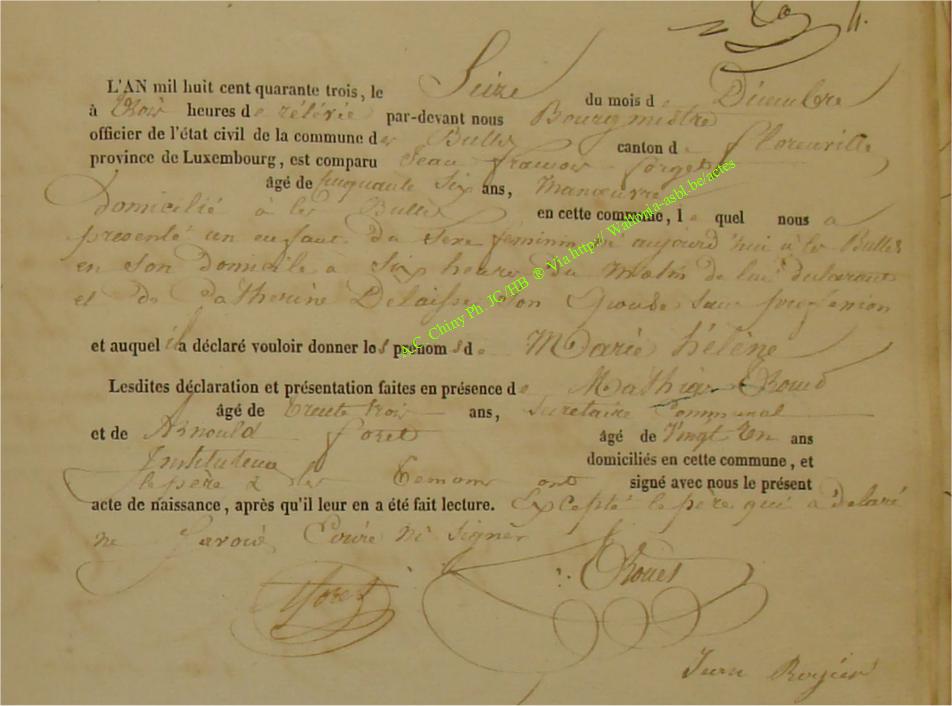 L'AN mil huit cent quarante trois, le Seize du mois de Décembre
à trois heures de rélévée par-devant nous Bourgmestre
officier de l'état civil de la commune des Bulles canton de Florenville
province de Luxembourg, est comparu Jean françois forget
âgé de cinquante Six ans, Manœuvre
Domicilié à les Bulles en cette commune, le quel nous a
presenté un enfant du Sexe feminin né aujourd'hui à les Bulles
en Son Domicile a Six heures du Matin de lui déclarant
et de Catherine Delaisse Son Epouse
et auquel il a déclaré vouloir donner les prénoms de Marie hélène
Lesdites déclaration et présentation faites en présence de Mathieu Roued
âgé de trente trois ans, Secretaire Communal
et de Arnould foret âgé de Vingt Un ans
Instituteur domiciliés en cette commune, et
le père & les temoins ont signé avec nous le présent
acte de naissance, après qu'il leur en a été fait lecture. Excepté le père qui a délaré
ne Savoir Ecrire ni Signer
foret
Roued
Jean Rogier
A.C. Chiny Ph JC/HB ® Via http:// Wallonia-asbl.be/actes